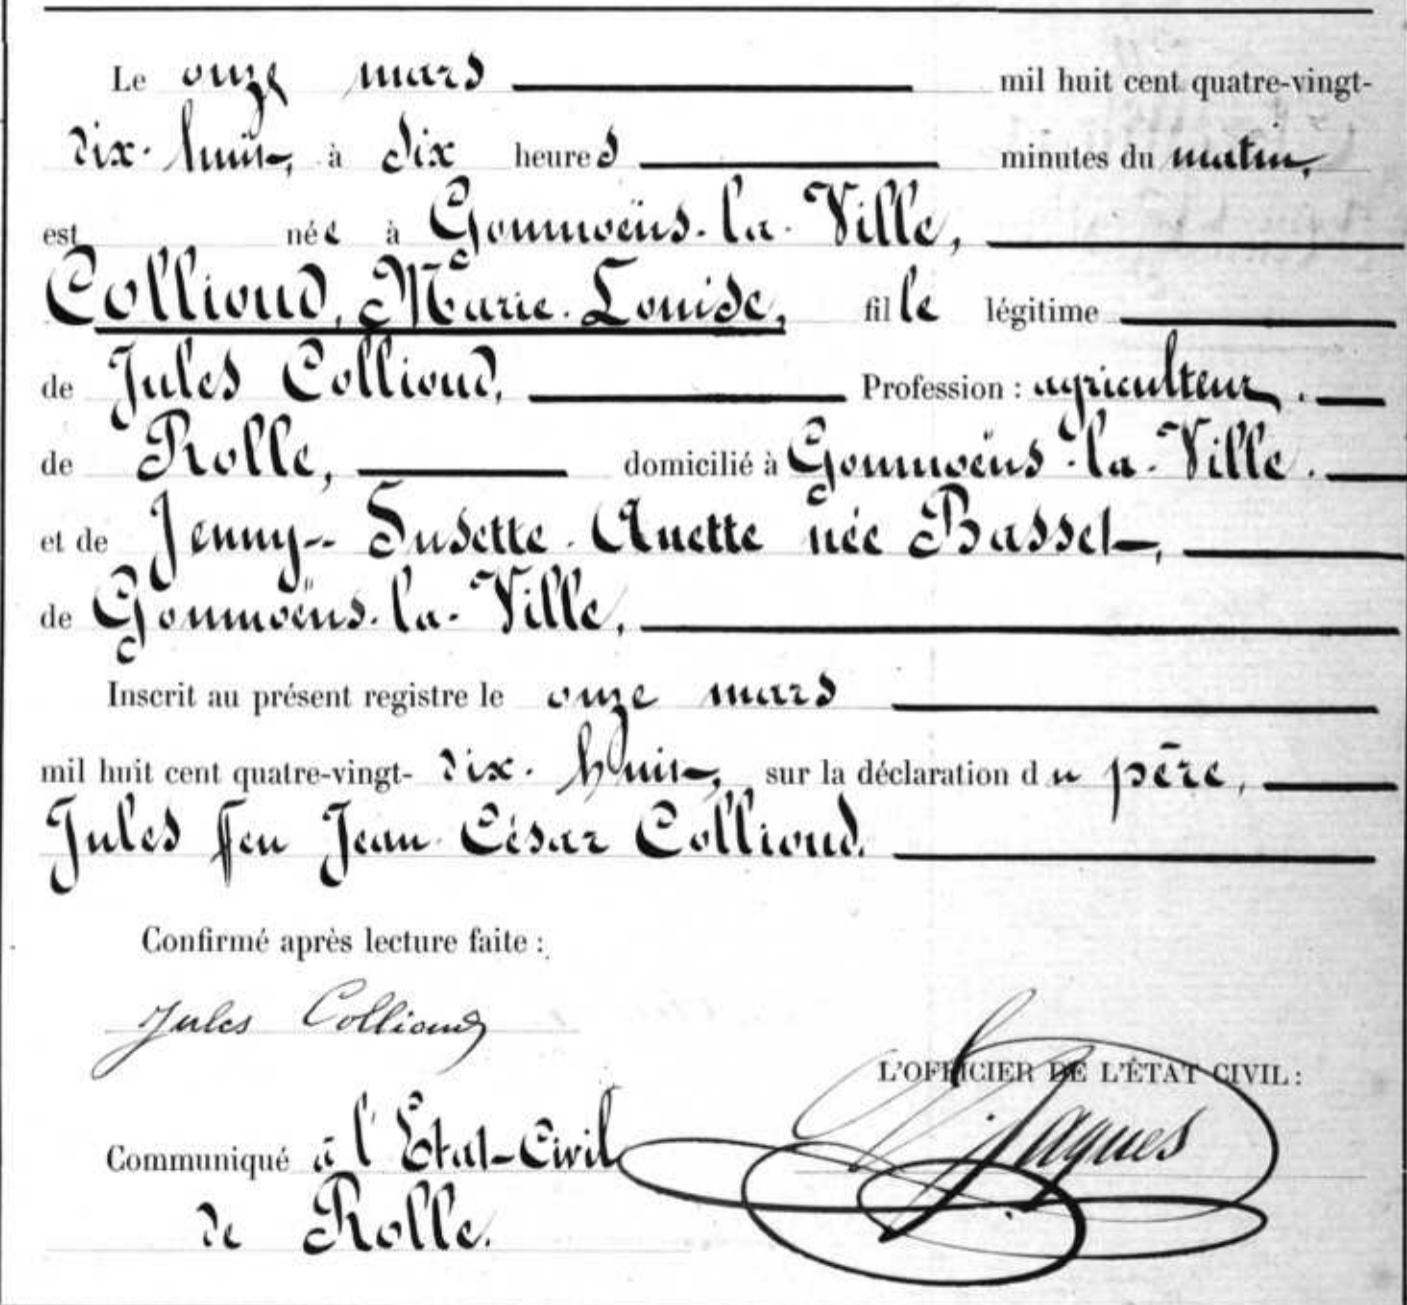 Le onze mars mil huit cent quatre-vingt-
dix-huit, à dix heures minutes du matin,
est née à Goumoëns-la-Ville,
Collioud, Marie-Louise, fille légitime
de Jules Collioud, Profession : agriculteur.
de Rolle, domicilié à Goumoëns-la-Ville.
et de Jenny-Susette-Anette née Basset,
de Goumoëns-la-Ville,
Inscrit au présent registre le onze mars
mil huit cent quatre-vingt-dix-huit, sur la déclaration du père,
Jules feu Jean-César Collioud.
Confirmé après lecture faite :
Jules Collioud
L'OFFICIER DE L'ÉTAT CIVIL :
Jaques
Communiqué à l'Etat-Civil
de Rolle.